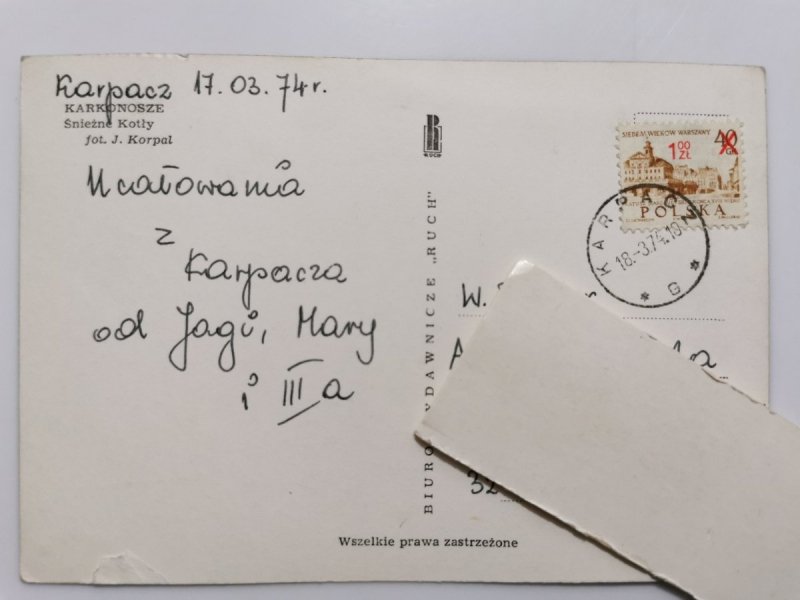 Karpacz 17.03.74r.
KARKONOSZE
Śnieżne Kotły
fot. J. Korpal
Ucałowania
z
Karpacza
od Jagi, Mary
i IIIa
RUCH
BIURO WYDAWNICZE „RUCH"
SIEDEM WIEKÓW WARSZAWY
40
1.00
ZŁ
POLSKA
KARPACZ
18.-3.74.18
* G *
W.
A
32
Wszelkie prawa zastrzeżone